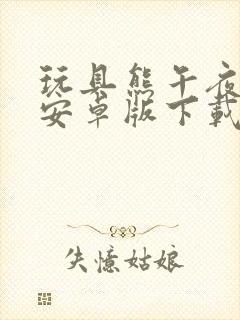 玩具熊午夜
安卓版下載
失憶姑娘